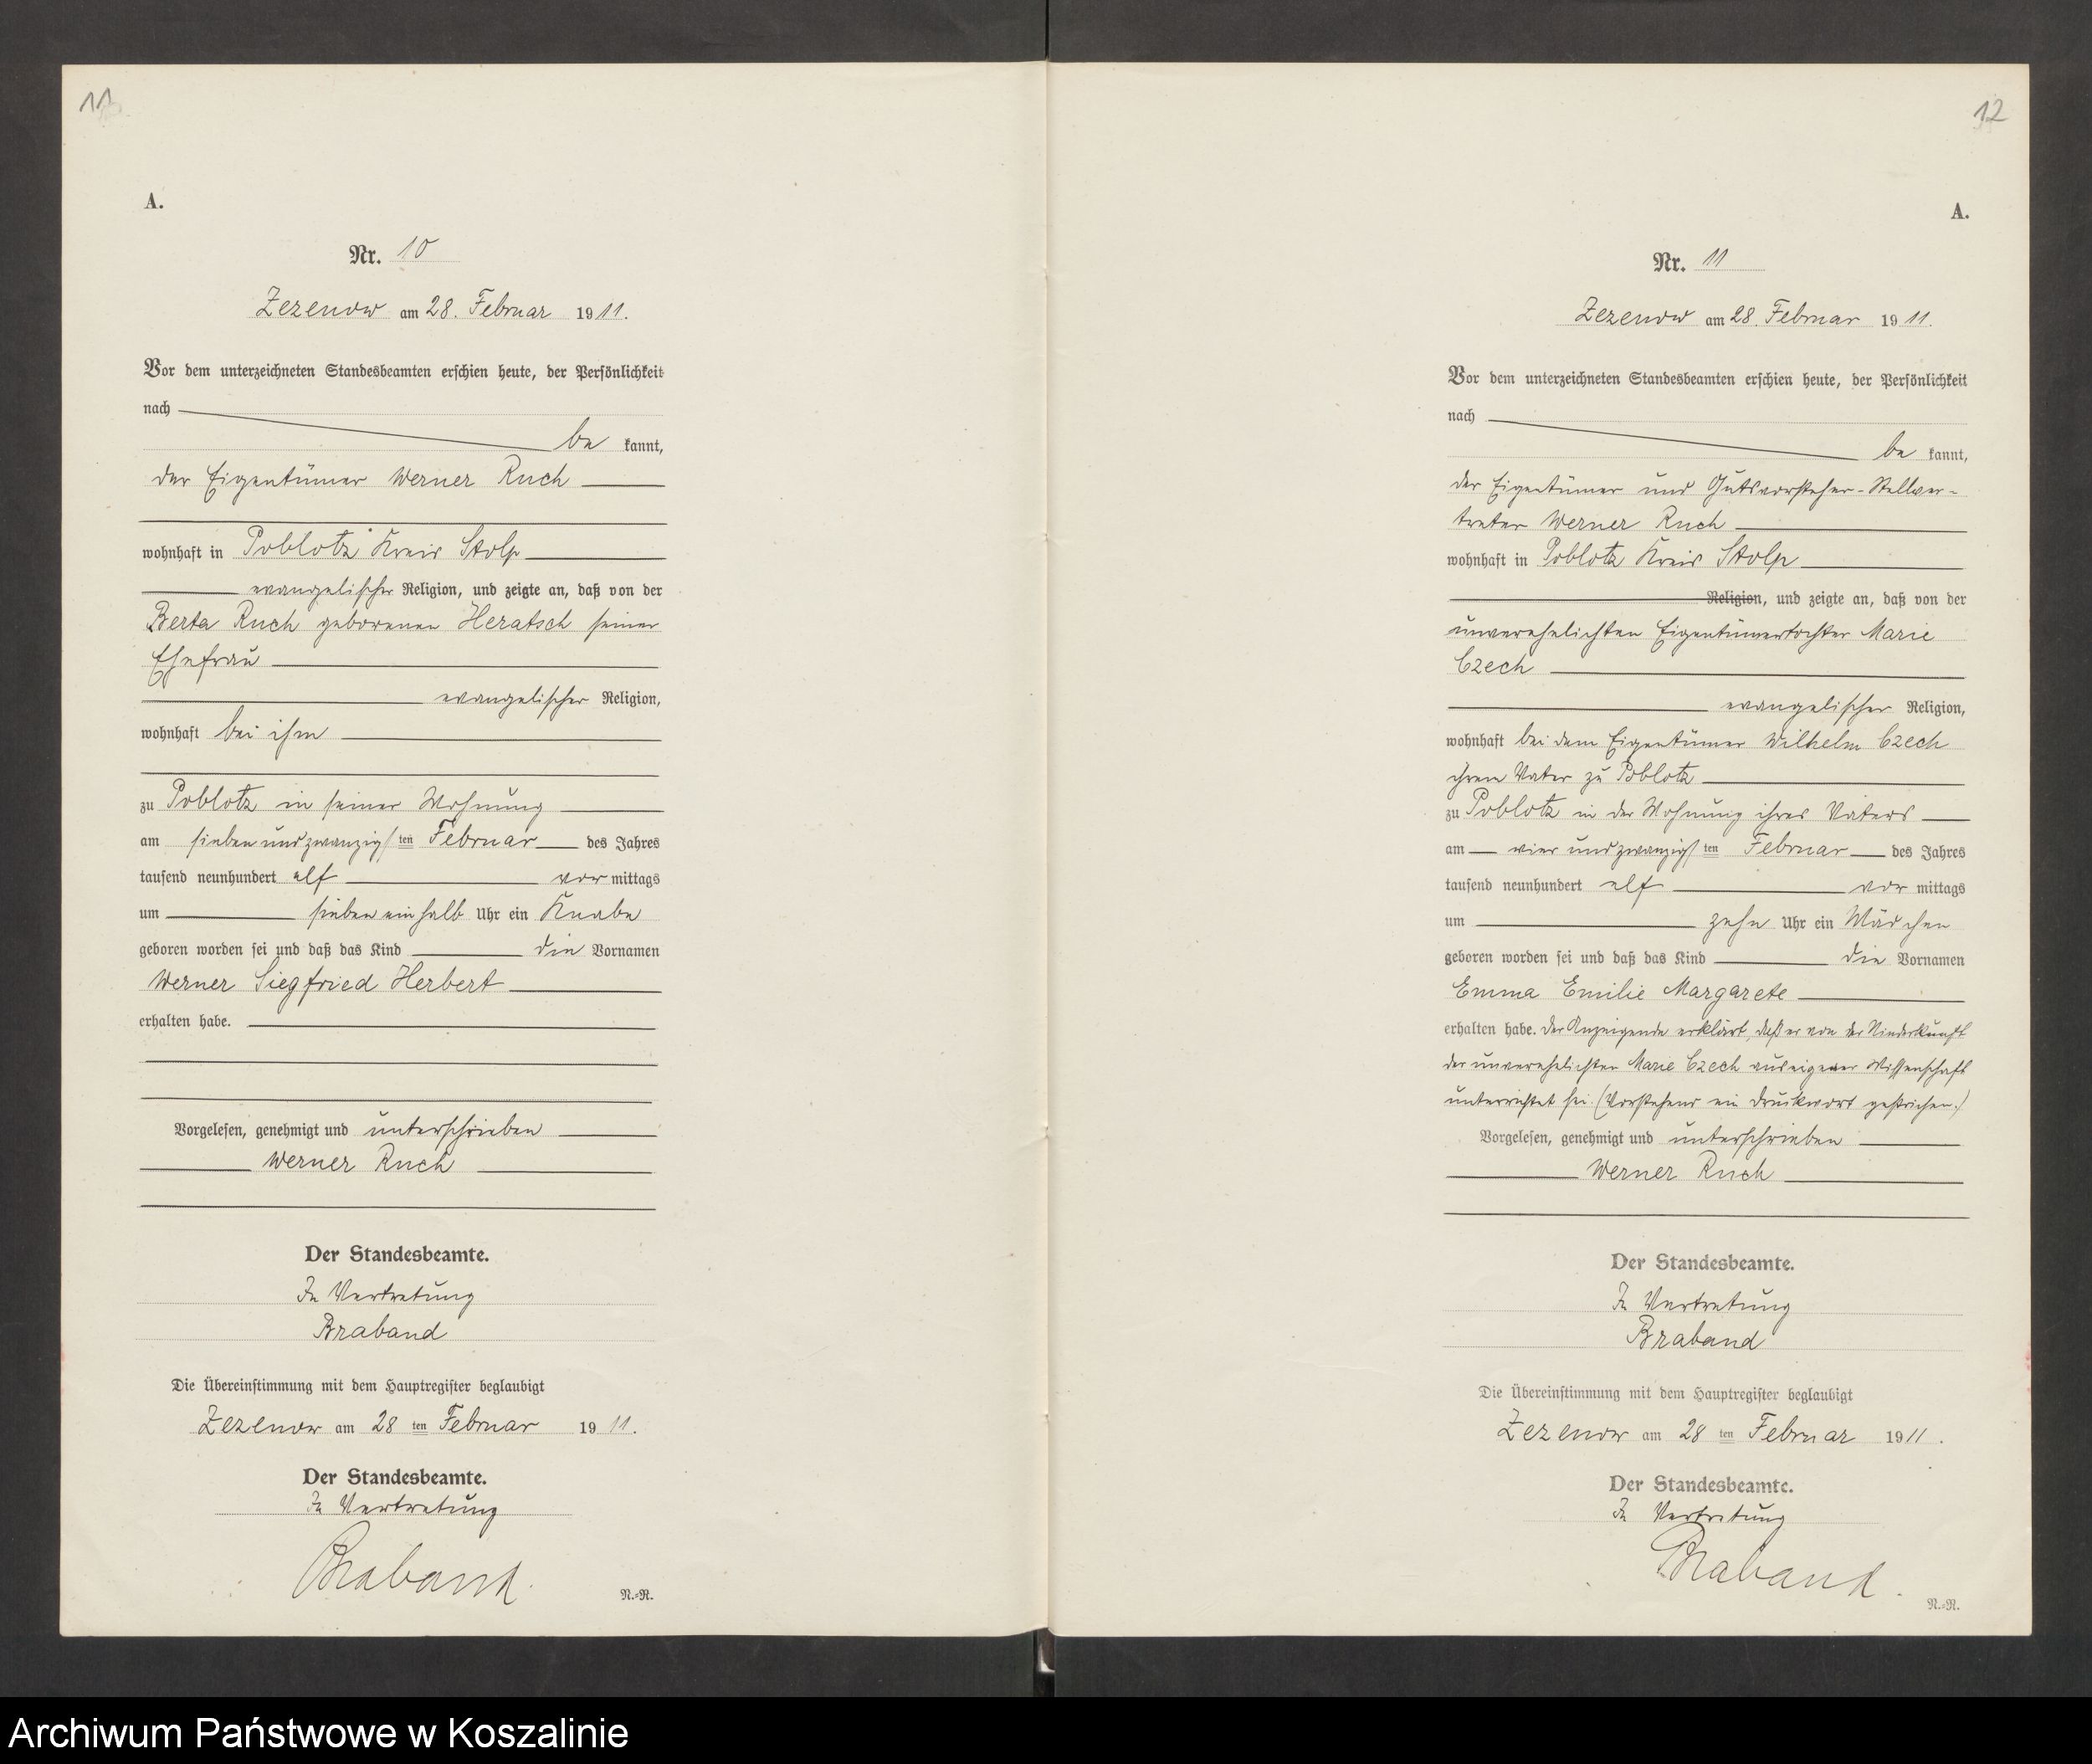 11
A.
Nr. 10
Zezenow am 28. Februar 1911.
Vor dem unterzeichneten Standesbeamten erschien heute, der Persönlichkeit
nach
be kannt,
der Eigentümer Werner Ruch
wohnhaft in Poblotz Kreis Stolp
evangelischer Religion, und zeigte an, daß von der
Berta Ruch geborenen Heratsch seiner
Ehefrau
evangelischer Religion,
wohnhaft bei ihm
zu Poblotz in seiner Wohnung
am siebenundzwanzigsten Februar des Jahres
tausend neunhundert elf vor mittags
um sieben einhalb Uhr ein Knabe
geboren worden sei und daß das Kind die Vornamen
Werner Siegfried Herbert
erhalten habe.
Vorgelesen, genehmigt und unterschrieben
Werner Ruch
Der Standesbeamte.
In Vertretung
Braband
Die Übereinstimmung mit dem Hauptregister beglaubigt
Zezenow am 28 ten Februar 1911.
Der Standesbeamte.
In Vertretung
Braband.
N.=R.
12
A.
Nr. 11
Zezenow am 28. Februar 1911.
Vor dem unterzeichneten Standesbeamten erschien heute, der Persönlichkeit
nach
be kannt,
der Eigentümer und Gutsvorsteher-Stellver-
treter Werner Ruch
wohnhaft in Poblotz Kreis Stolp
Religion, und zeigte an, daß von der
unverehelichten Eigentümertochter Marie
Czech
evangelischer Religion,
wohnhaft bei dem Eigentümer Wilhelm Czech
ihrem Vater zu Poblotz
zu Poblotz in der Wohnung ihres Vaters
am vierundzwanzigsten Februar des Jahres
tausend neunhundert elf vor mittags
um zehn Uhr ein Mädchen
geboren worden sei und daß das Kind die Vornamen
Emma Emilie Margarete
erhalten habe. Der Anzeigende erklärt, daß er von der Niederkunft
der unverehelichten Marie Czech aus eigener Wissenschaft
unterrichtet sei. (Vorstehend ein Druckwort gestrichen.)
Vorgelesen, genehmigt und unterschrieben
Werner Ruch
Der Standesbeamte.
In Vertretung
Braband
Die Übereinstimmung mit dem Hauptregister beglaubigt
Zezenow am 28 ten Februar 1911.
Der Standesbeamte.
In Vertretung
Braband.
N.=R.
Archiwum Państwowe w Koszalinie